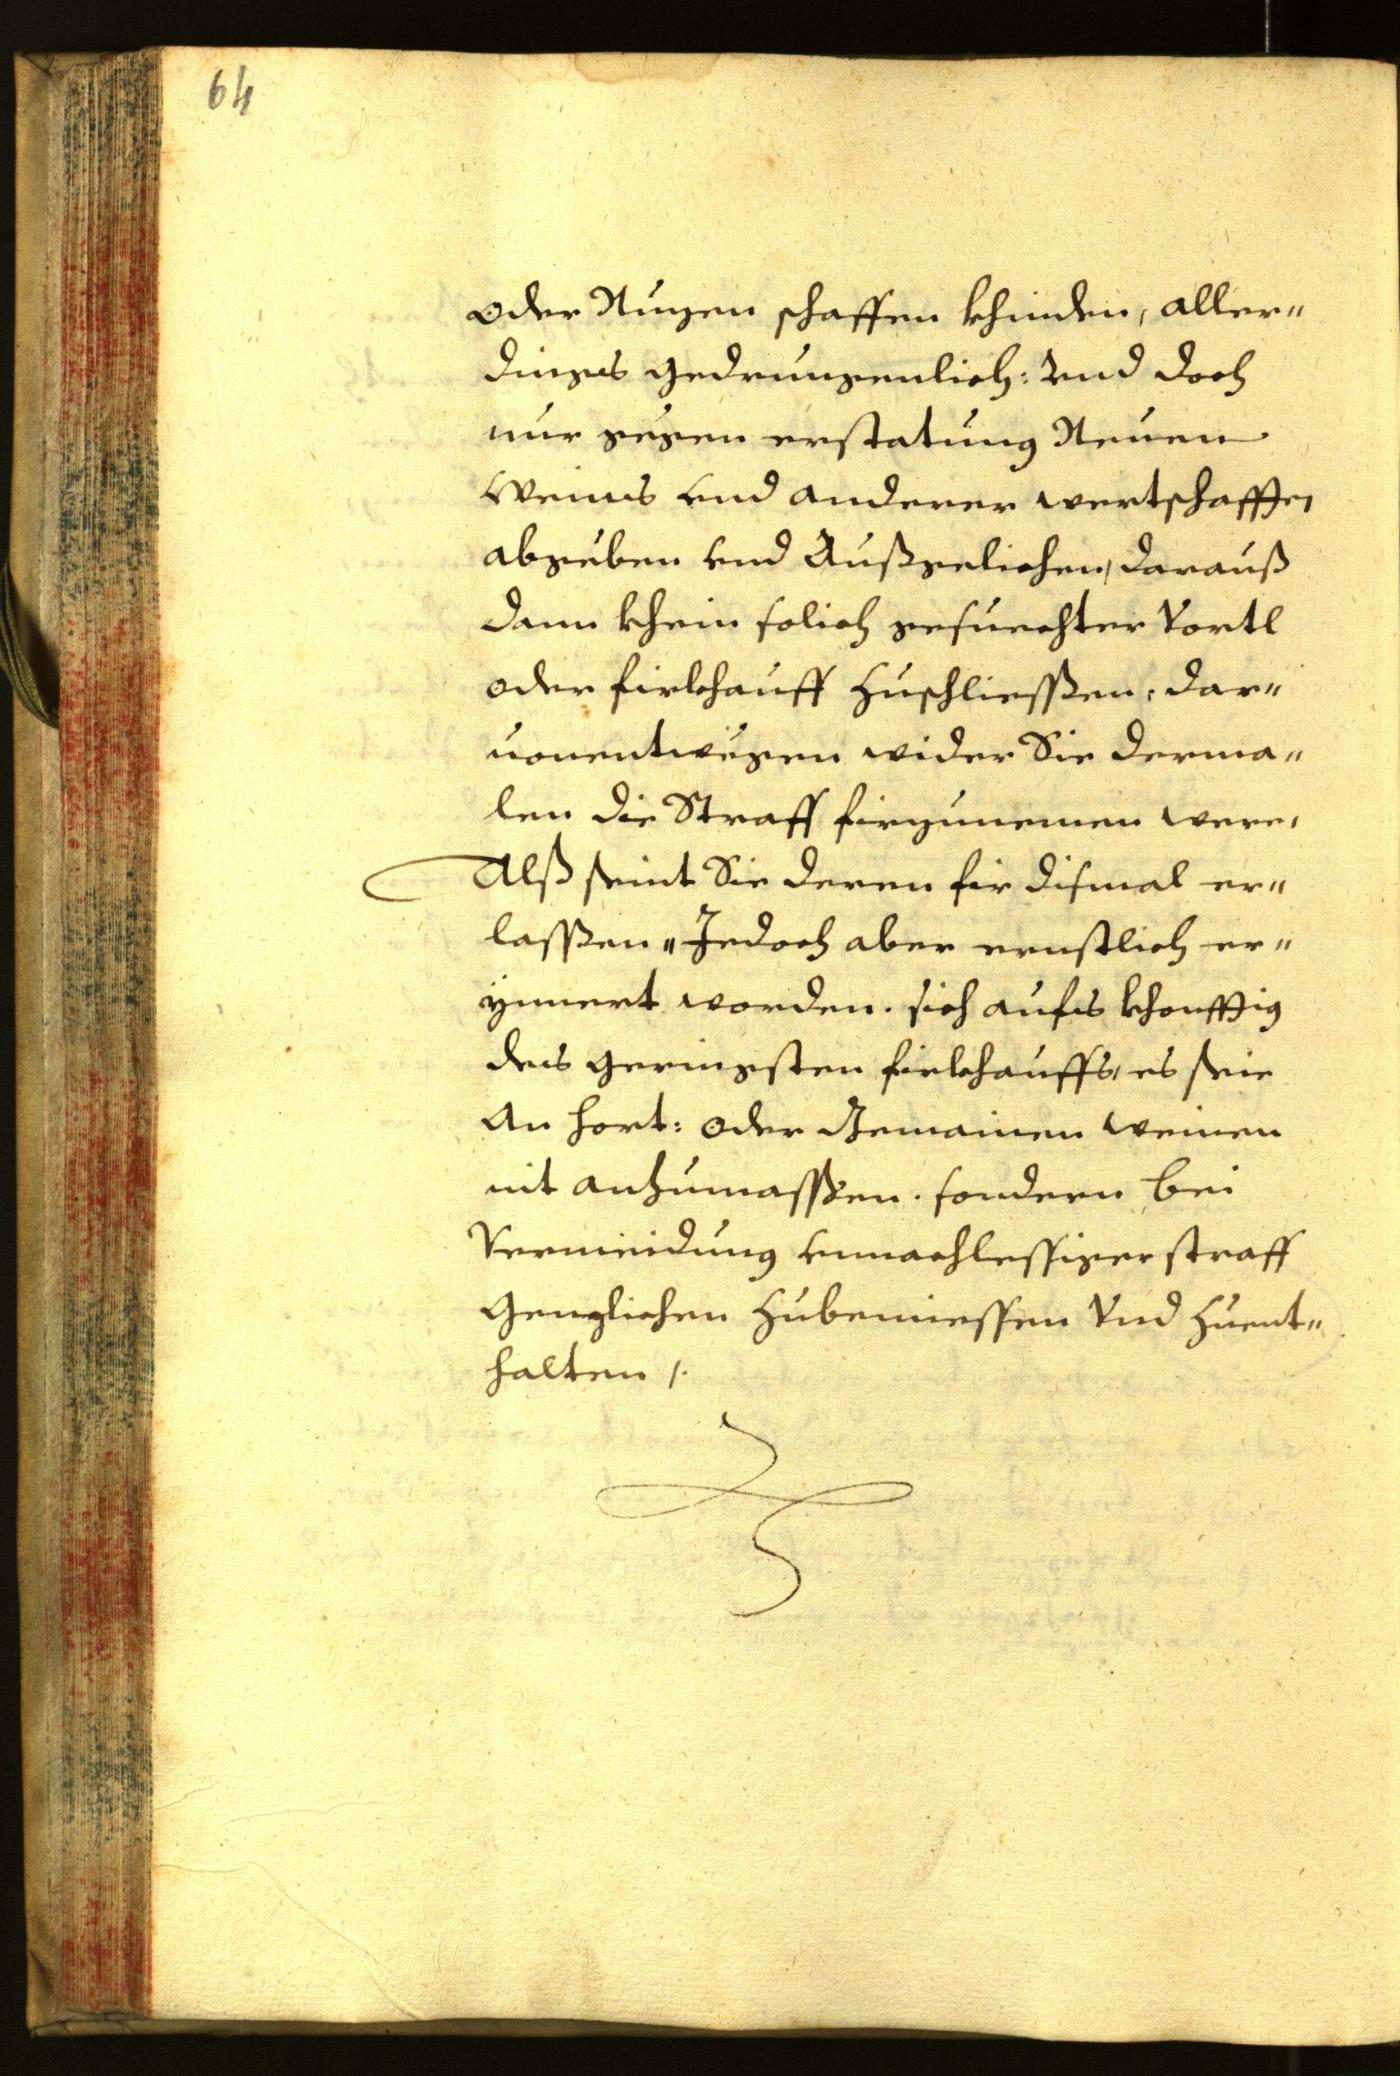 64
oder Nuzen schaffen khinden, aller"
dings gedrungenlich: Vnd doch
nur gegen erstatung Neuen
Weins vnd anderer wertschafften
abgeben vnd Außgelichen, darauß
dann khein solich gesuechter Vortl
oder firkhauff zuschliessen: dar"
uonentwegen wider Sie derma"
len die Straff firzunemen were,
Alß seint Sie deren fir dismal er"
lassen " Jedoch aber ernstlich er"
ynnert worden. sich aufs khonfftig
des geringsten firkhauffs, es seie
An hort: oder Gemainen weinen
nit anzumassen. sondern bei
Vermeidung vnnachlessiger straff
Genzlichen zubemiessen Vnd zuent"
halten /.